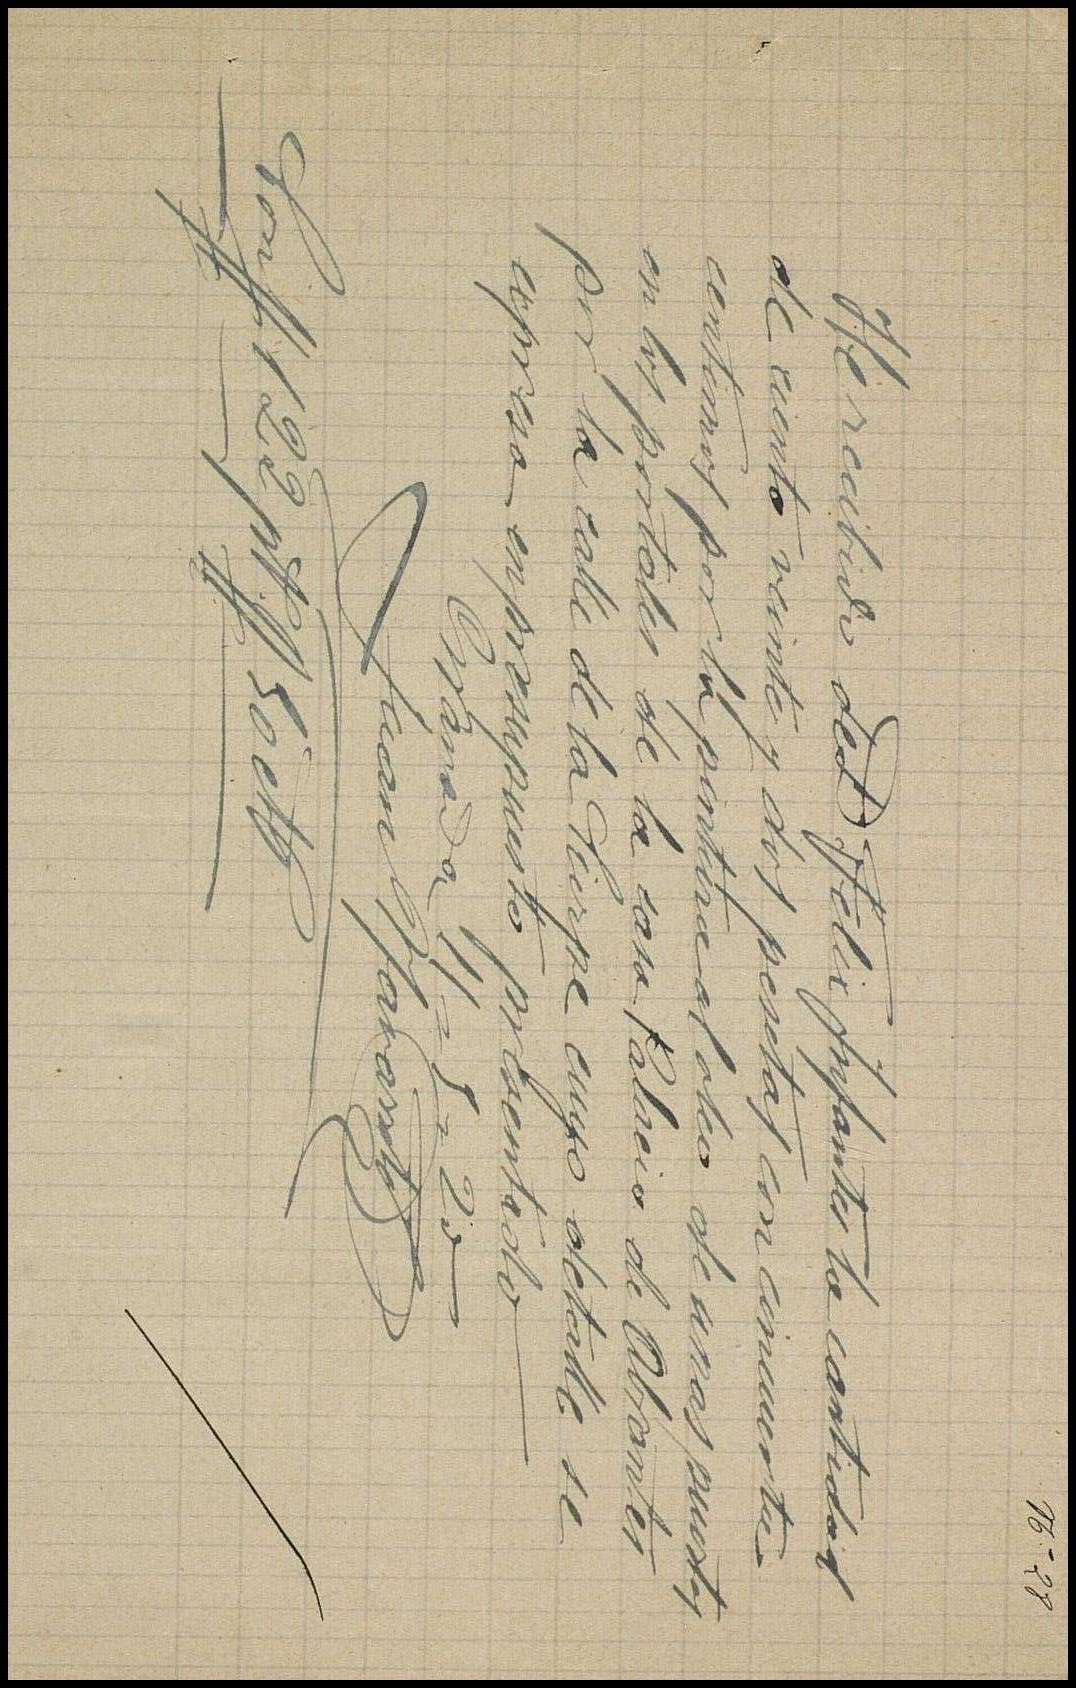 76-28
He recibido de D. Felix Infantes la cantidad
de ciento veinte y dos pesetas con cincuenta
centimos por la pintura al oleo de unas puertas
en los portales de la casa Palacio de Abrantes
por la calle de la Sierpe cuyo detalle se
expresa en presupuesto presentado
Granada 11-5-20
Juan
Son 122 pts 50 cts